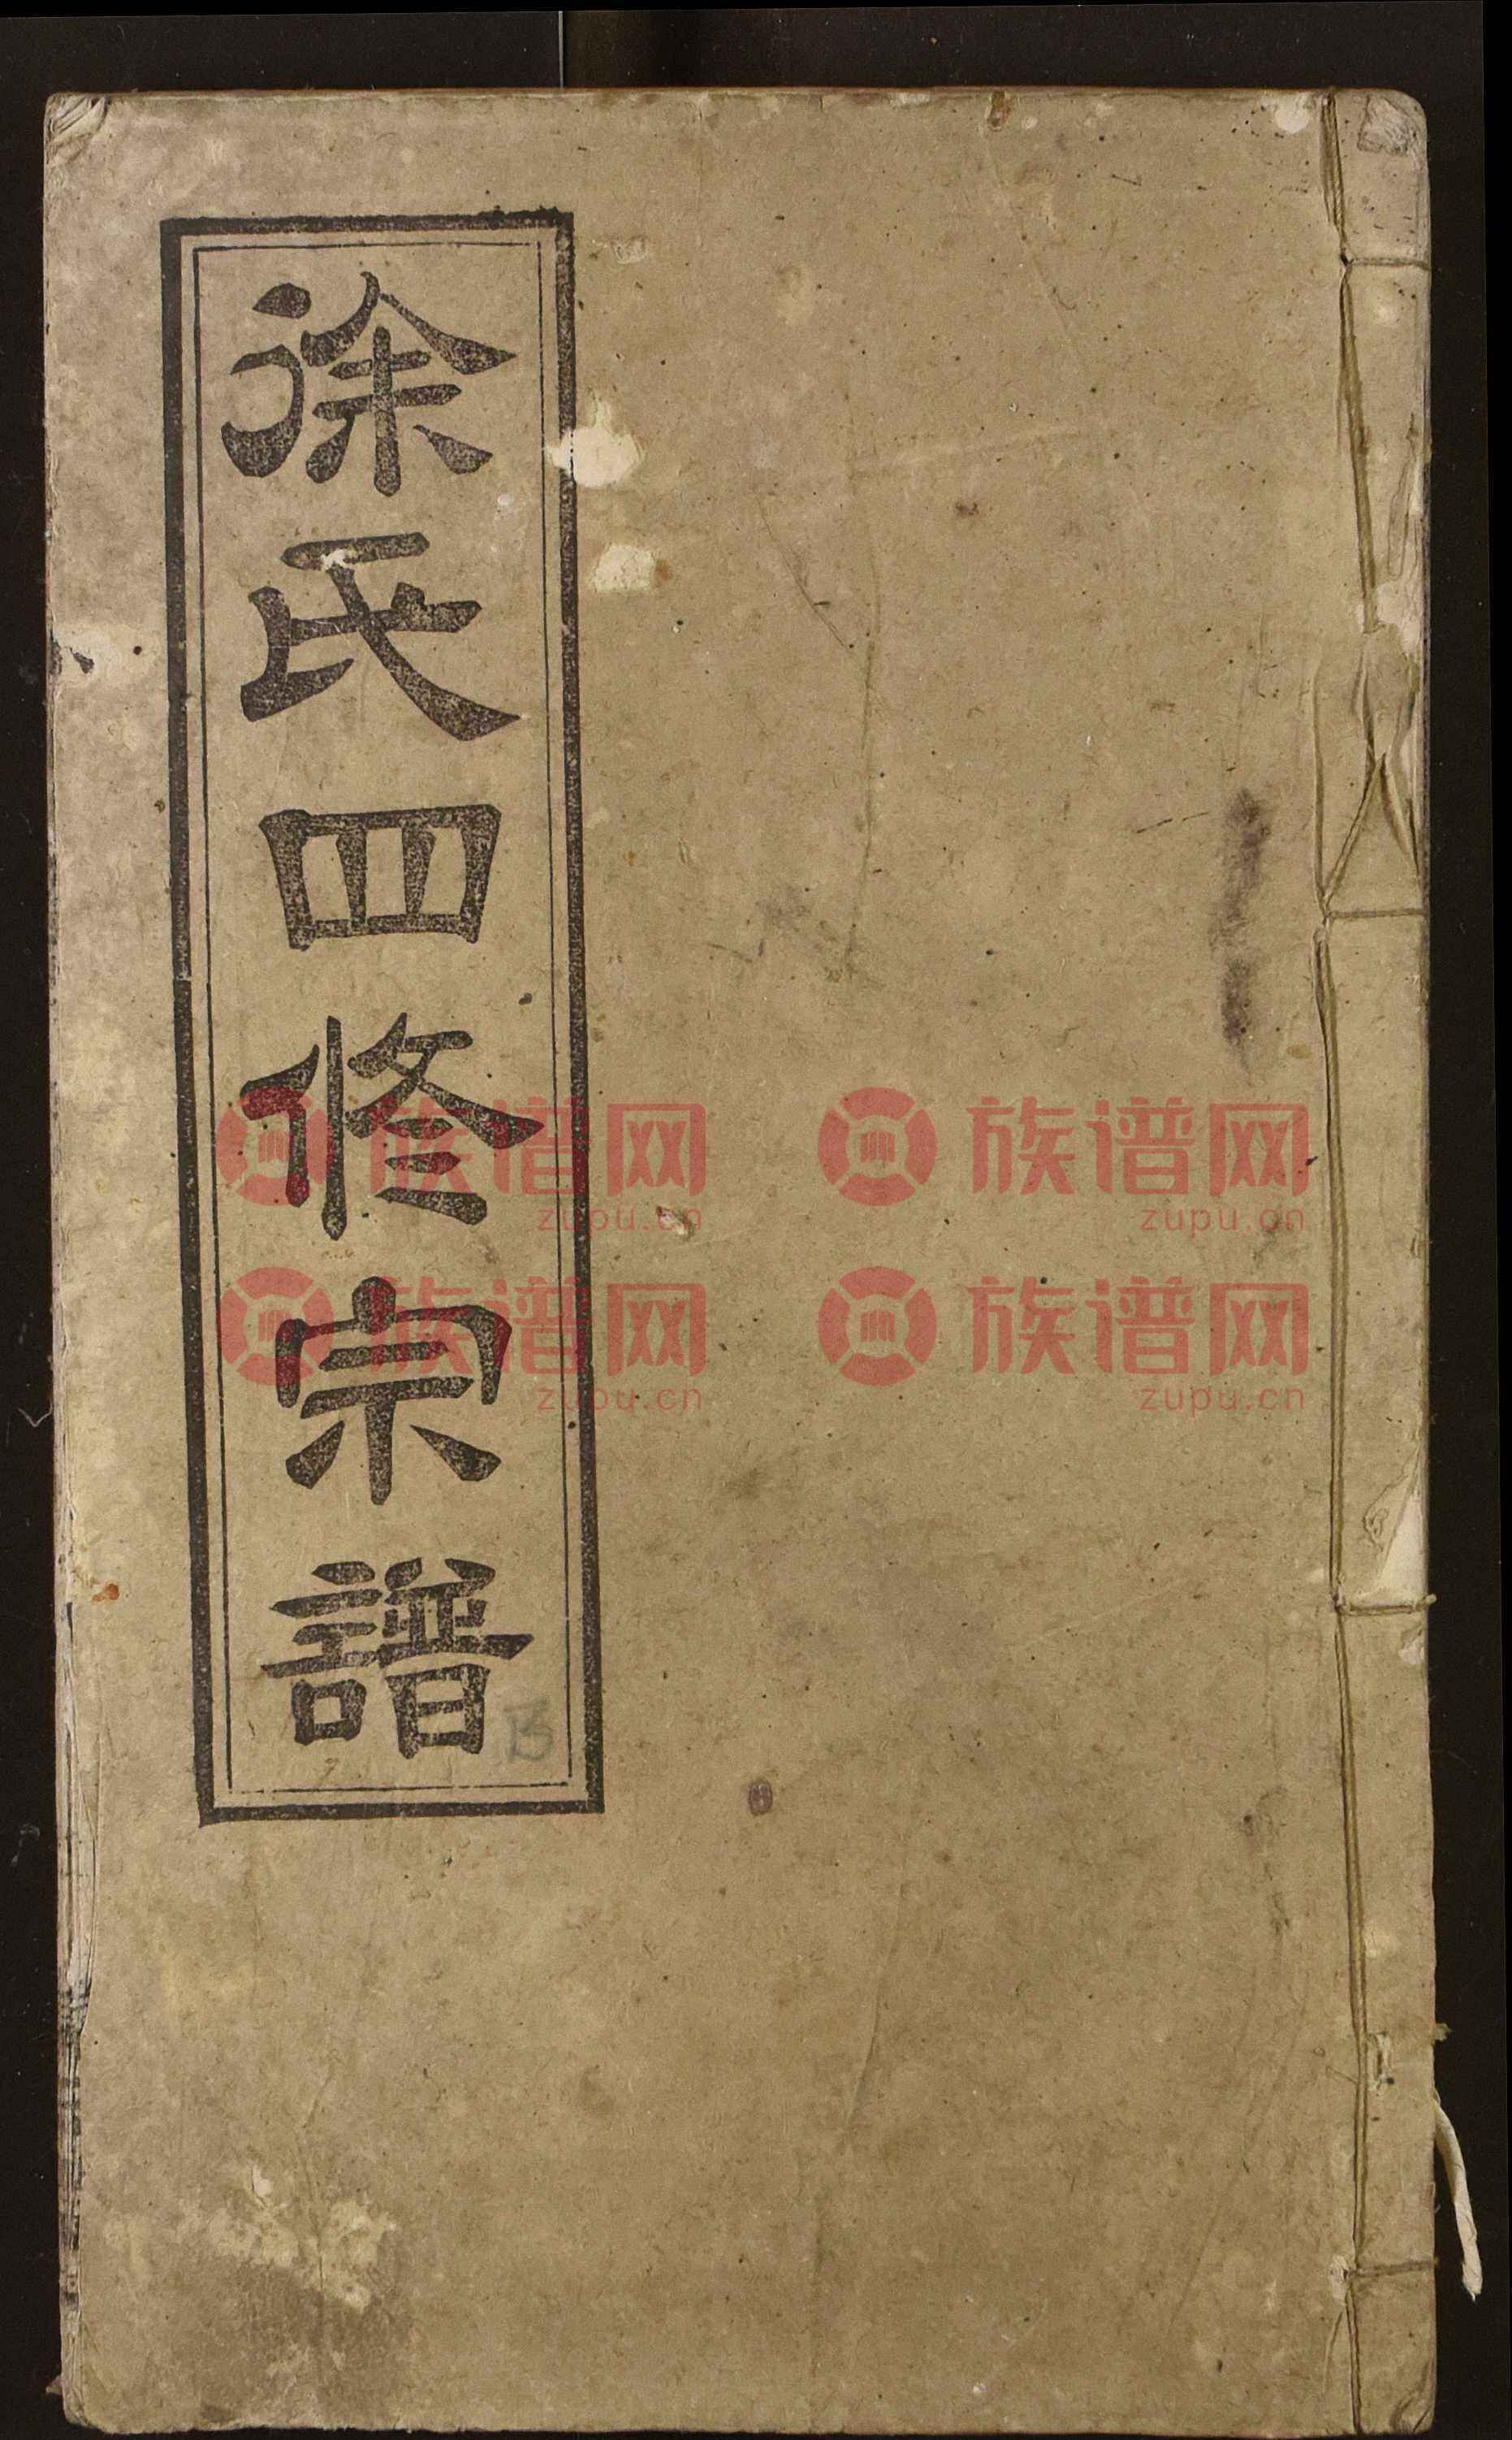 徐氏四修宗譜
族谱网 族谱网
zupu.cn zupu.cn
族谱网 族谱网
zupu.cn zupu.cn